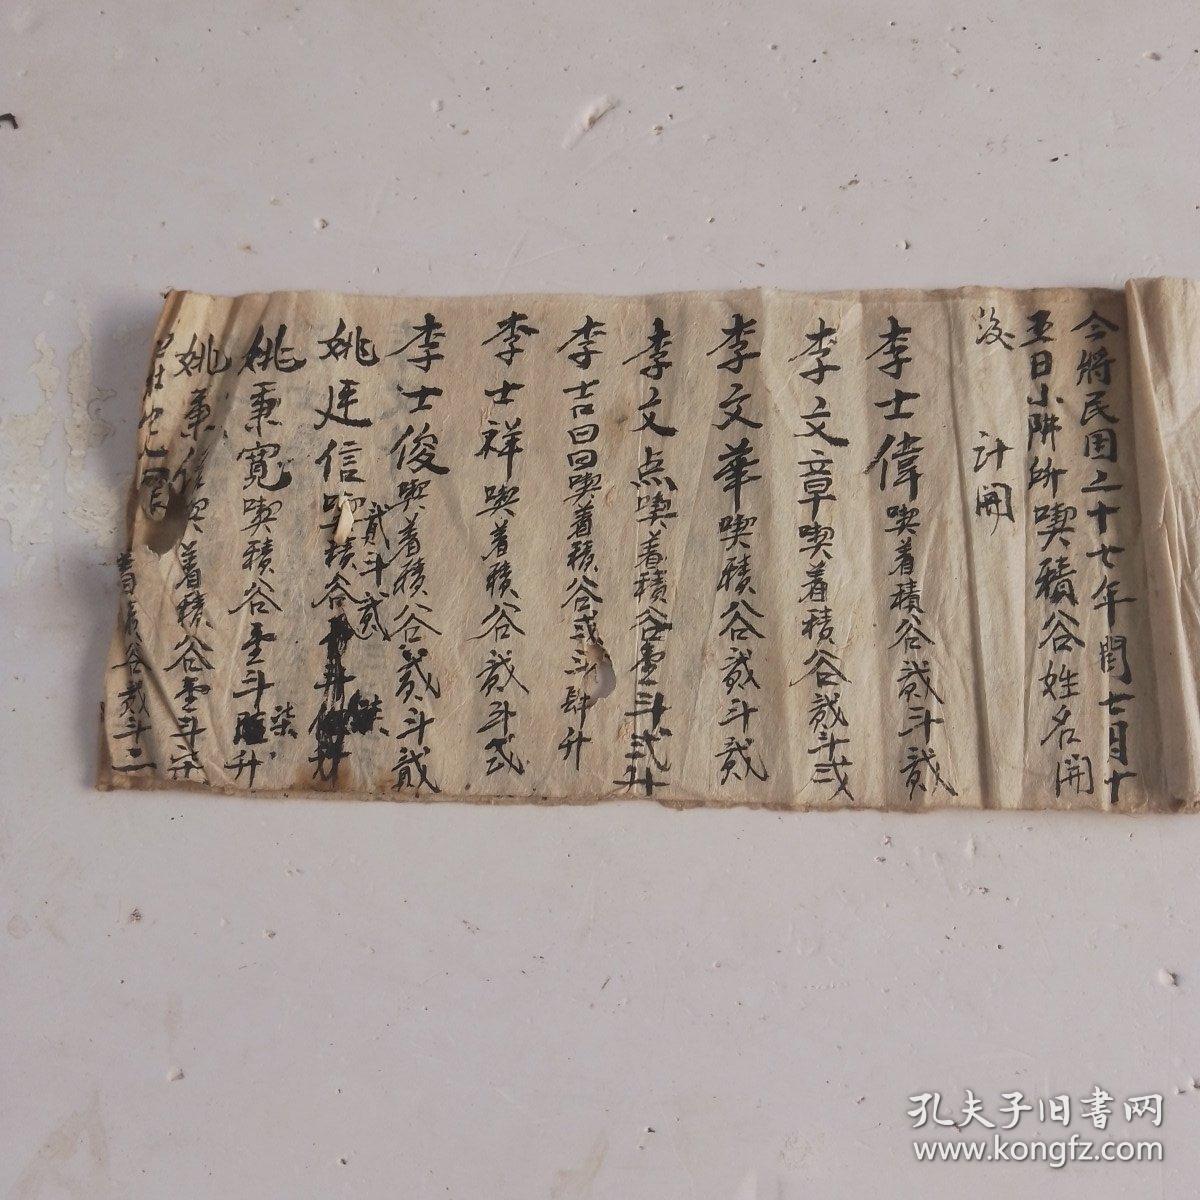 今將民国二十七年閏七月十
五日小阱所喫積谷姓名開
後 计開
李士偉喫着積谷貳斗貳
李文章喫着積谷貳斗弍
李文華喫積谷貳斗貳
李文点喫着積谷壹斗弍升
李吉昌喫着積谷弍斗肆升
李士祥喫着積谷貳斗弍
李士俊喫着積谷貳斗貳
貳斗貳
姚廷信喫積谷
姚秉寬喫積谷壹斗升
柒
姚秉信喫着積谷壹斗六
着積谷貳斗二
孔夫子旧書网
www.kongfz.com